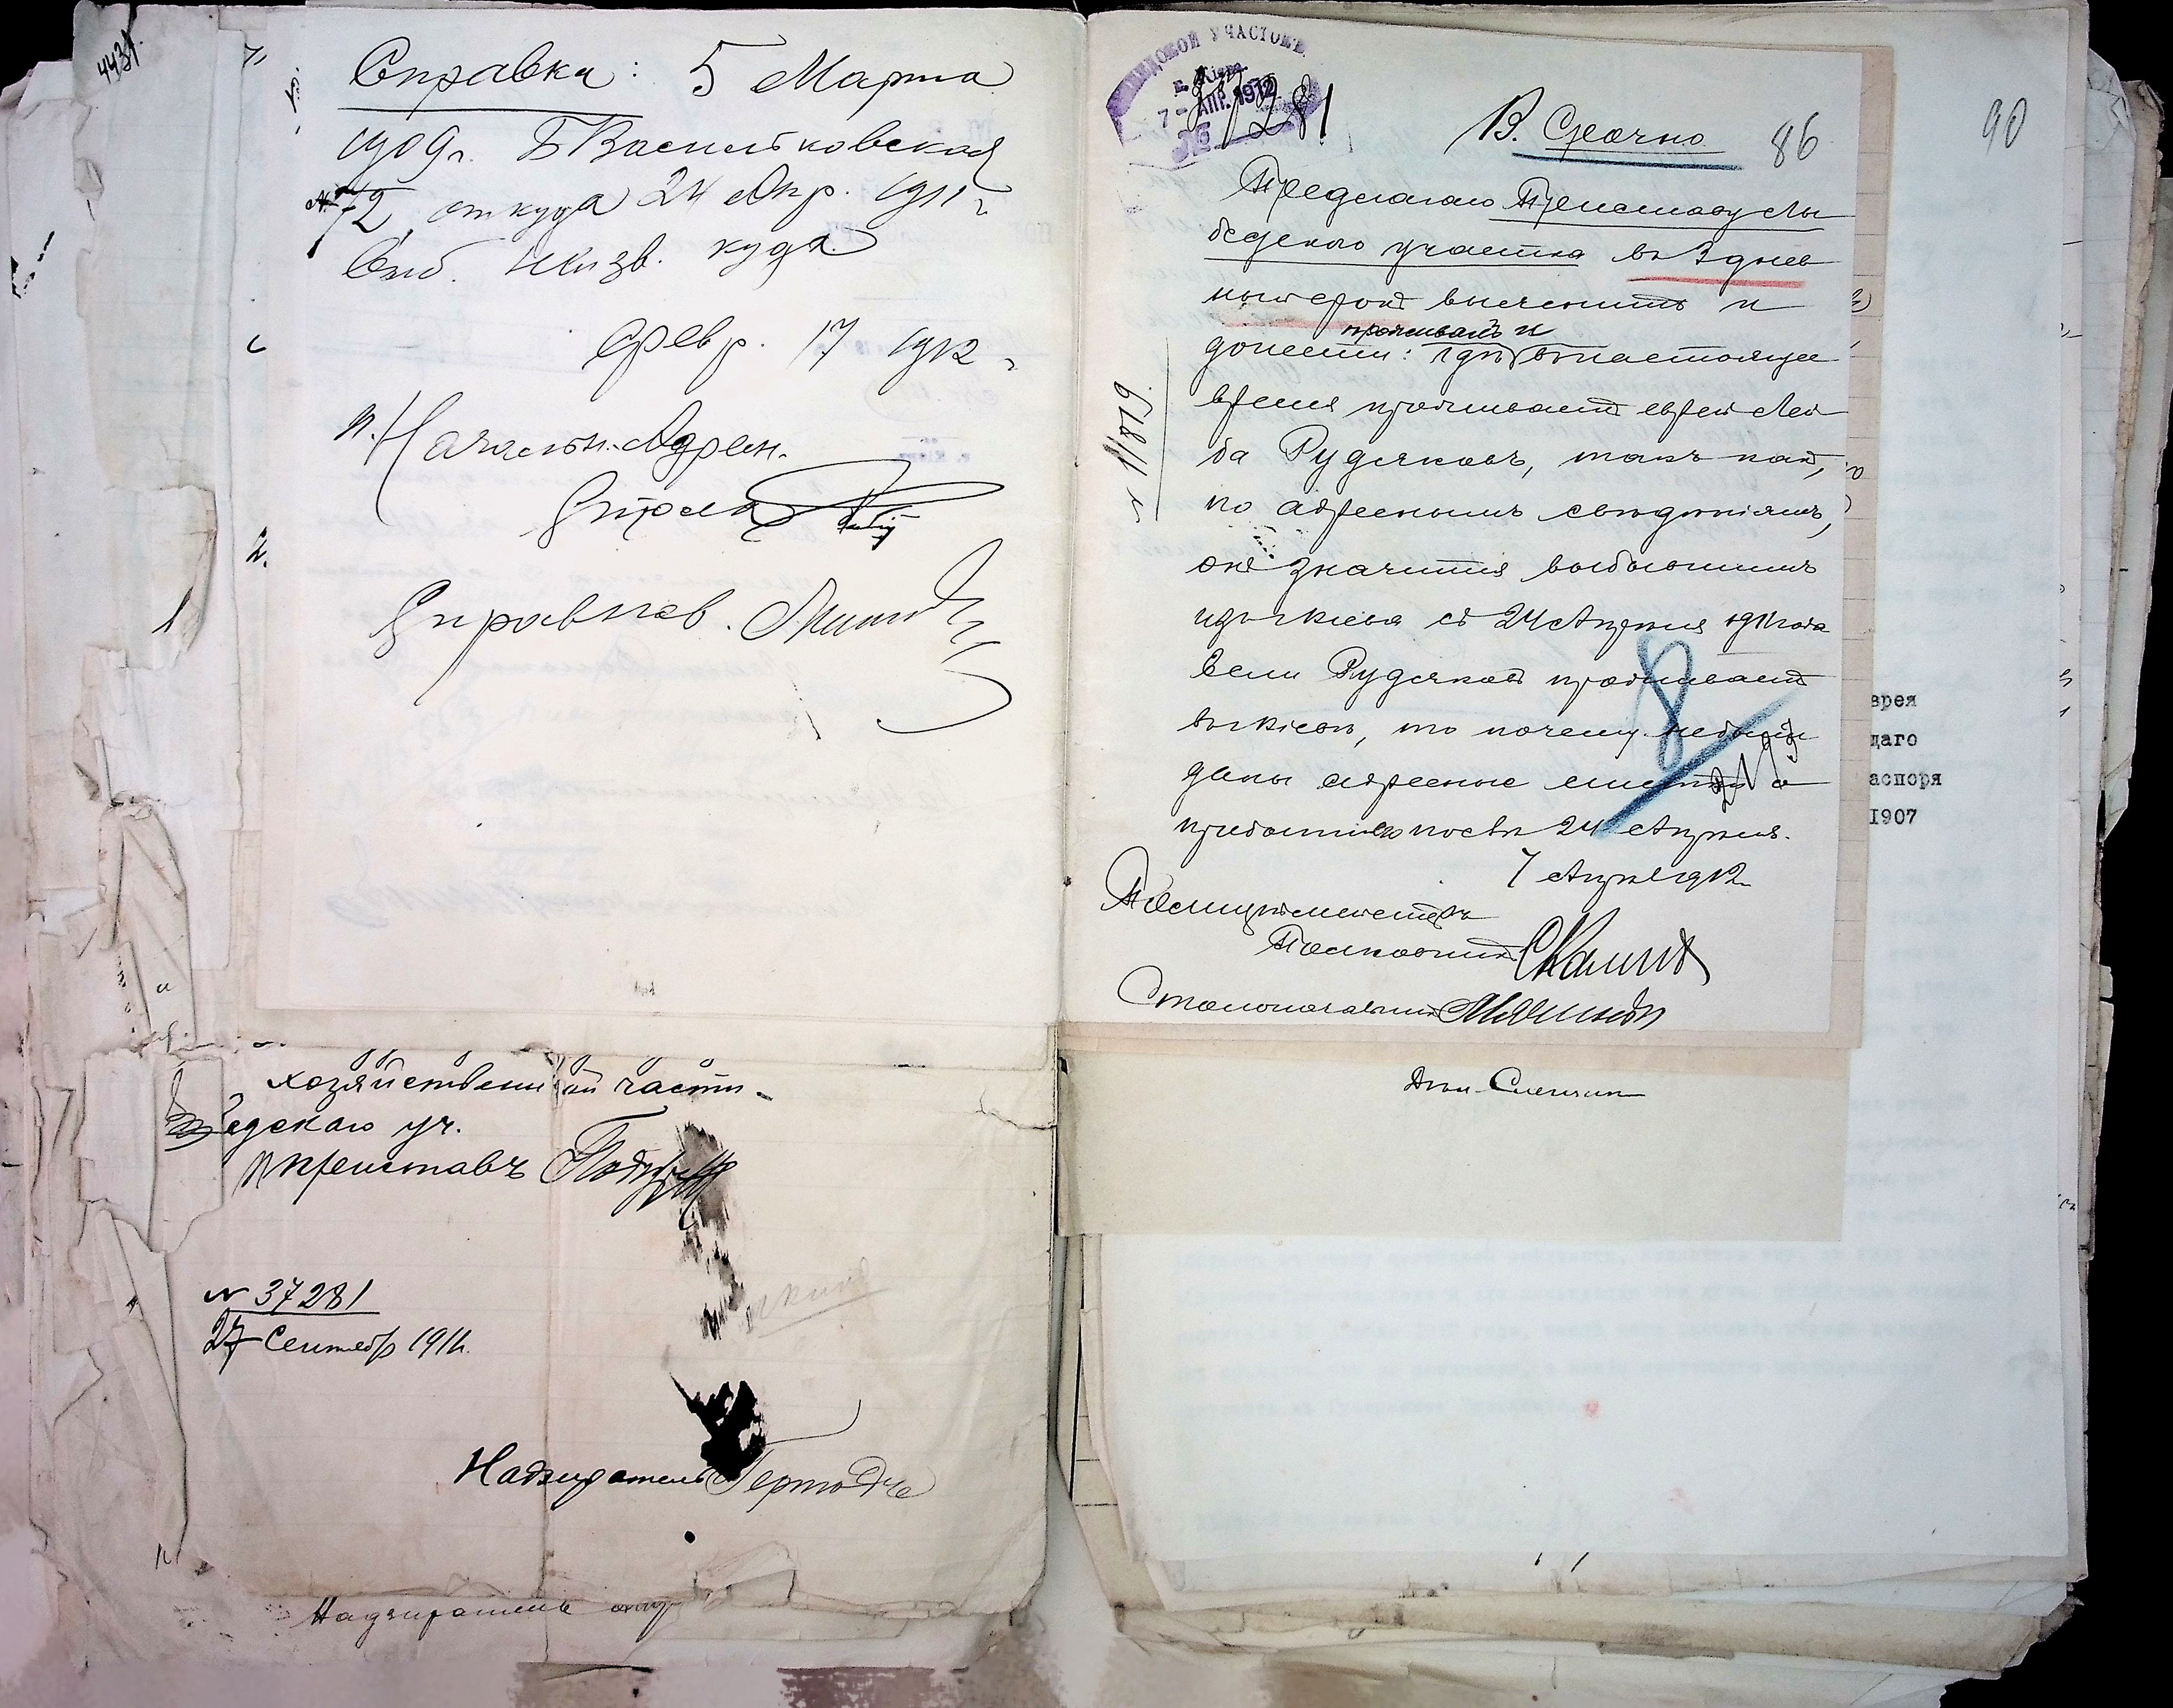 4431.
Справка: 5 Марта
1909 г. Б Васильковская
№ 72, откуда 24 Апр. 1911 г.
выб. неизв. куда
Февр. 17 1912 г.
п. Начальн. Адресн.
Справ.
2.
хозяйственной части
едскаго уч.
п Приставъ
N 37281
27 Сентябр 1911.
Надзиратель
Надзиратель
УЧАСТОКЪ
г. Кіева
7 - АПР. 1912
В. Срочно 86
90
Предлагаю Приставу Лы
бедскаго участка въ 3 днев
ный срокъ выяснить и
проживалъ и
донести: гдѣ въ настоящее
время проживаетъ еврей Лей
ба Рудяковъ, такъ какъ,
по адреснымъ свѣдѣніямъ,
онъ значится выбывшимъ
изъ Кіева съ 24 Апрѣля 1911 года
Если Рудяковъ проживаетъ
въ Кіевѣ, то почему не были
даны адресные листки о
прибытіи его послѣ 24 Апрѣля.
7 Апрѣля 1912
Полиціймейстеръ
Полковникъ
Столоначальникъ
N 11819.
8
врея
щаго
аспоря
1907